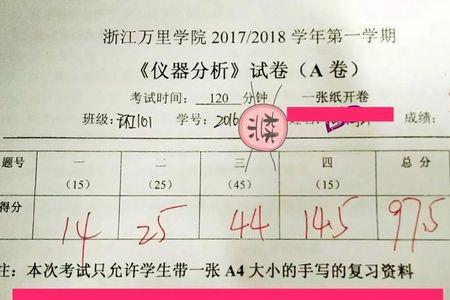 浙江万里学院 2017/2018 学年第一学期
《仪器分析》试卷（A 卷）
考试时间： 120 分钟 一张纸开卷
班级：环101 学号：2016 成绩：
题号 一 二 三 四 总分
（15） （25） （45） （15）
得分 14 25 44 14.5 97.5
注：本次考试只允许学生带一张 A4 大小的手写的复习资料